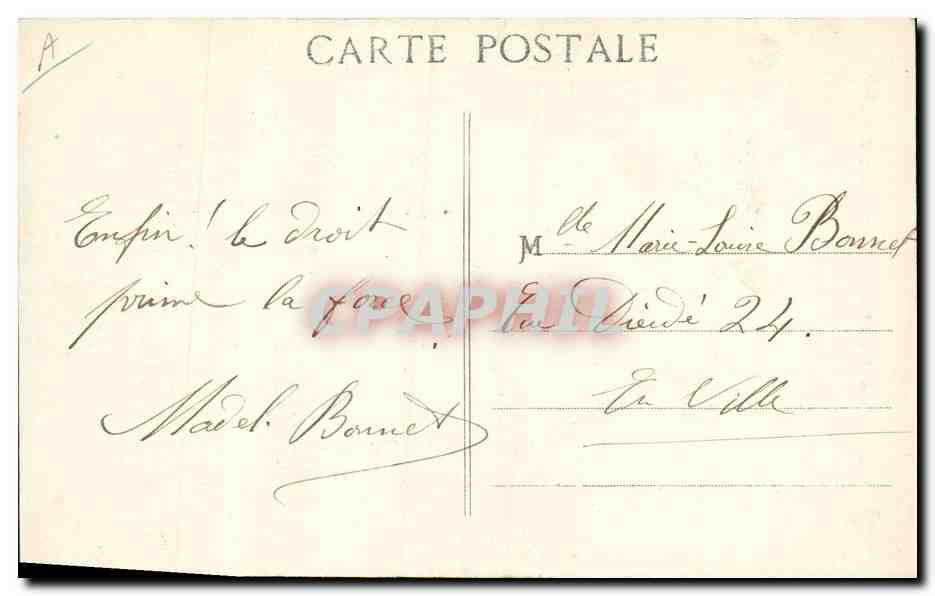 A
CARTE POSTALE
Enfin! le droit
prime la force.
Madel. Bonnet
Mlle Marie-Louise Bonnet
Rue Dieudé 24.
En Ville
CPAPHIL